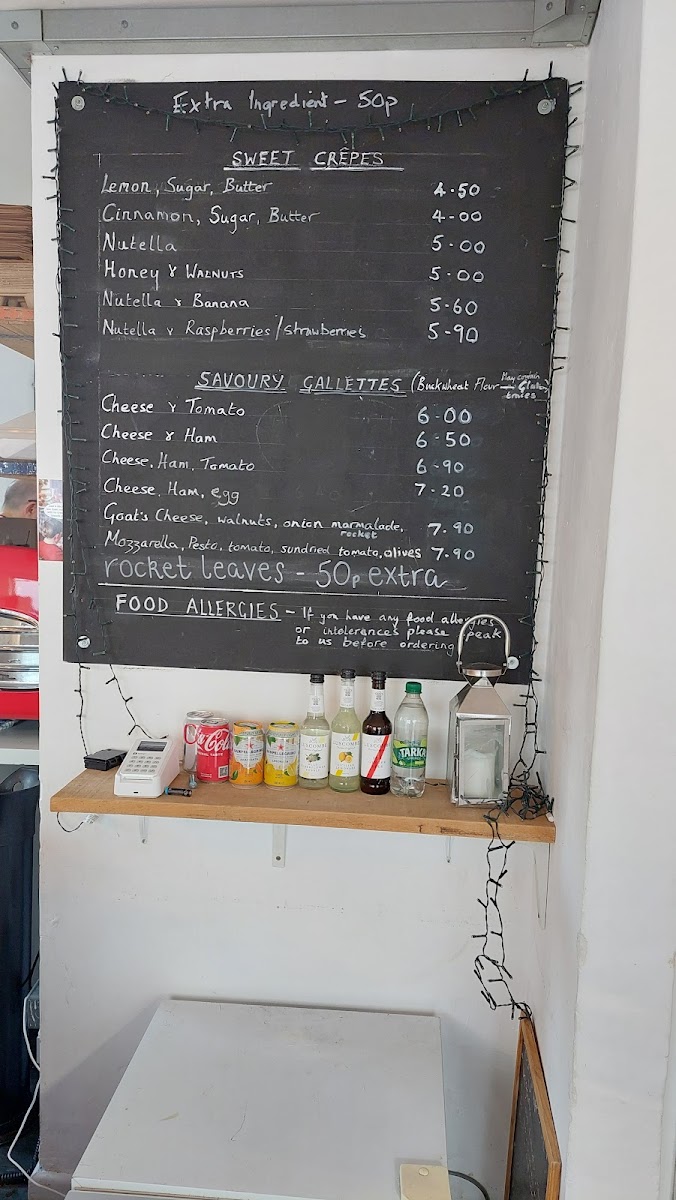 Extra Ingredient - 50p
SWEET CRÊPES
Lemon, Sugar, Butter 4.50
Cinnamon, Sugar, Butter 4-00
Nutella 5.00
Honey & WALNUTS 5.00
Nutella & Banana 5-60
Nutella & Raspberries/strawberries 5-90
SAVOURY GALLETTES (Buckwheat Flour - May contain Gluten traces)
Cheese & Tomato 6.00
Cheese & Ham 6.50
Cheese, Ham, Tomato 6-90
Cheese, Ham, egg 7-20
Goat's Cheese, walnuts, onion marmalade, rocket 7.90
Mozzarella, Pesto, tomato, sundried tomato, olives 7.90
rocket leaves - 50p extra
FOOD ALLERGIES - If you have any food allergies
or intolerences please speak
to us before ordering
TARKA